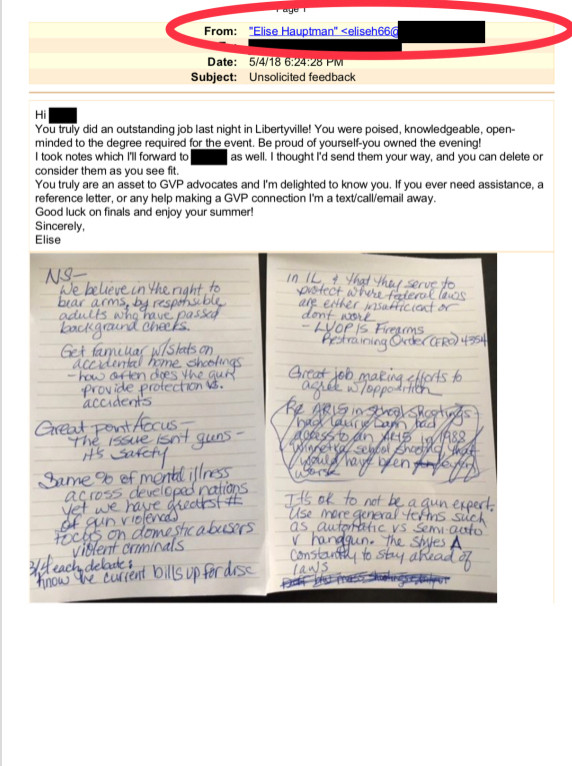 Page 1
From: "Elise Hauptman" <eliseh66@
Date: 5/4/18 6:24:28 PM
Subject: Unsolicited feedback
Hi
You truly did an outstanding job last night in Libertyville! You were poised, knowledgeable, open-
minded to the degree required for the event. Be proud of yourself-you owned the evening!
I took notes which I'll forward to as well. I thought I'd send them your way, and you can delete or
consider them as you see fit.
You truly are an asset to GVP advocates and I'm delighted to know you. If you ever need assistance, a
reference letter, or any help making a GVP connection I'm a text/call/email away.
Good luck on finals and enjoy your summer!
Sincerely,
Elise
NS-
We believe in the right to
bear arms, by responsible
adults who have passed
background checks.
Get familiar w/stats on
accidental home shootings
- how often does the gun
provide protection vs.
accidents
Great point/focus -
The issue isn't guns -
it's safety
Same % of mental illness
across developed nations
yet we have greatest #
of gun violence
focus on domestic abusers
violent criminals
each debate:
know the current bills up for disc
in IL & that they serve to
protect where federal laws
are either insufficient or
dont work
- LVOP IS Firearms
Restraining Order (FRO) 4354
Great job making efforts to
agree w/opposition
Re AR15 in School Shootings
had Laurie Dann had
access to an AR15 in 1988
Winnetka school shooting that
would have been
worse
It's ok to not be a gun expert.
Use more general terms such
as automatic vs semi-auto
v handgun. The styles Δ
constantly to stay ahead of
laws